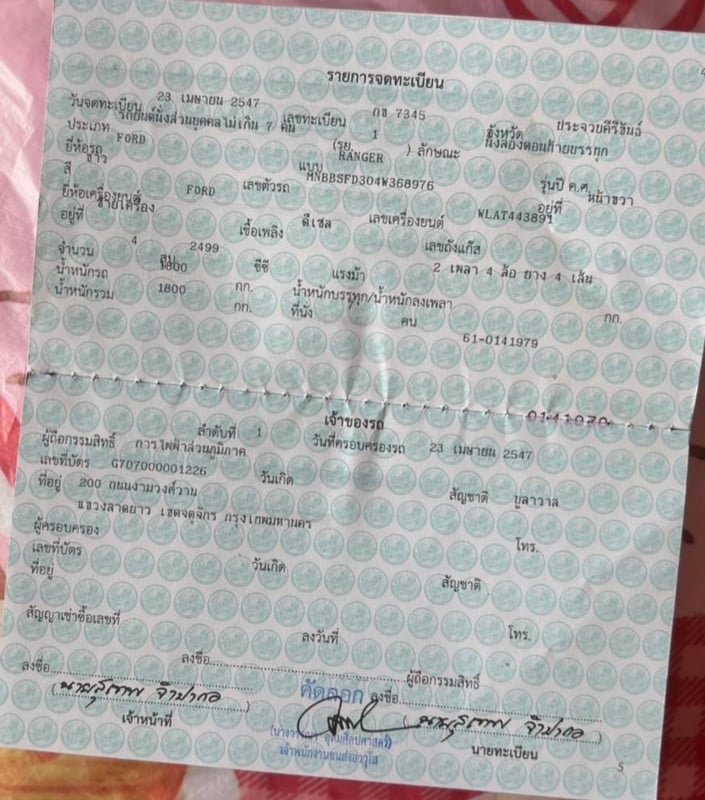 รายการจดทะเบียน
วันจดทะเบียน 23 เมษายน 2547 เลขทะเบียน กข 7345 จังหวัด ประจวบคีรีขันธ์
ประเภท รถยนต์นั่งส่วนบุคคลไม่เกิน 7 คน (รย. 1 ) ลักษณะ นั่งสองตอนท้ายบรรทุก
ยี่ห้อรถ FORD แบบ RANGER รุ่นปี ค.ศ.
สี ขาว เลขตัวรถ MNBBSFD304W368976 อยู่ที่ หน้าขวา
ยี่ห้อเครื่องยนต์ FORD เลขเครื่องยนต์ WLAT443891
อยู่ที่ ซ้ายเครื่อง เชื้อเพลิง ดีเซล เลขถังแก๊ส
จำนวน 4 สูบ 2499 ซีซี แรงม้า 2 เพลา 4 ล้อ ยาง 4 เส้น
น้ำหนักรถ 1800 กก. น้ำหนักบรรทุก/น้ำหนักลงเพลา กก.
น้ำหนักรวม 1800 กก. ที่นั่ง คน
61-0141979
เจ้าของรถ
ลำดับที่ 1 วันที่ครอบครองรถ 23 เมษายน 2547
ผู้ถือกรรมสิทธิ์ การไฟฟ้าส่วนภูมิภาค
เลขที่บัตร G707000001226 วันเกิด สัญชาติ
ที่อยู่ 200 ถนนงามวงศ์วาน
แขวงลาดยาว เขตจตุจักร กรุงเทพมหานคร โทร.
ผู้ครอบครอง
เลขที่บัตร วันเกิด สัญชาติ
ที่อยู่
โทร.
สัญญาเช่าซื้อเลขที่ ลงวันที่
ลงชื่อ ผู้ถือกรรมสิทธิ์
ลงชื่อ คัดลอก ลงชื่อ
เจ้าหน้าที่ นายทะเบียน
เจ้าพนักงานขนส่งอาวุโส
5